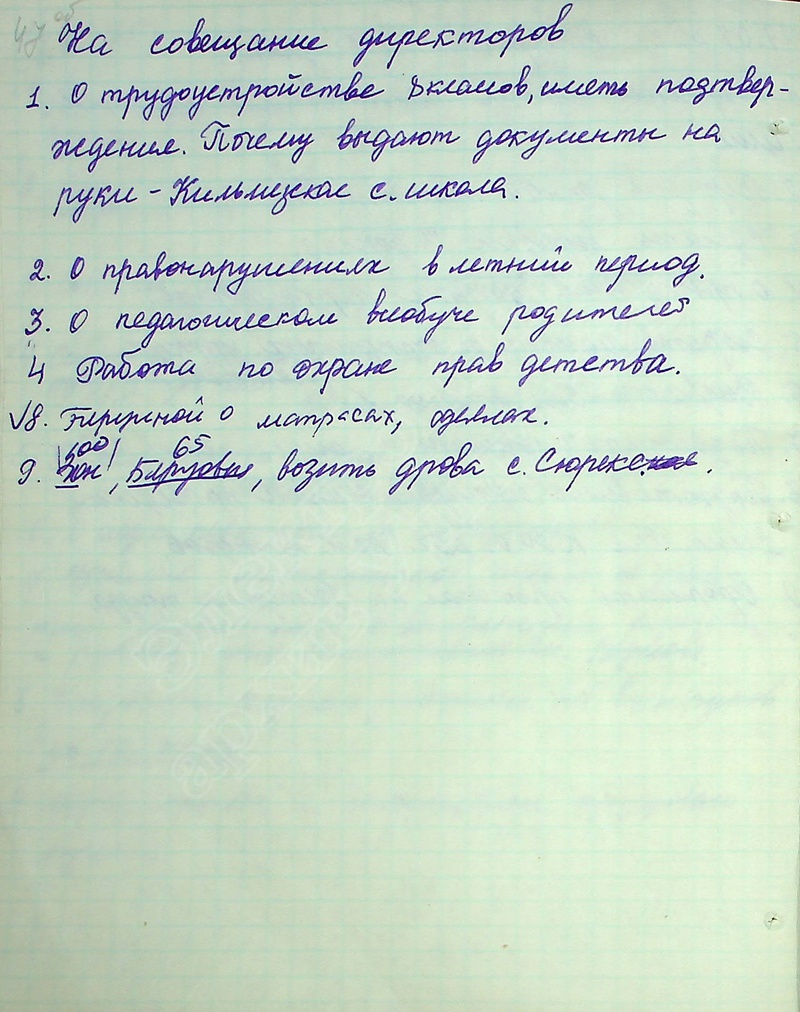 47 об
На совещание директоров
1. О трудоустройстве 8 классов, иметь подтвер-
ждение. Почему выдают документы на
руки - Кильмезская с. школа.
2. О правонарушениях в летний период.
3. О педагогическом всеобуче родителей
4 Работа по охране прав детства.
√8. о матрасах, одеялах.
65
9. , возить дрова с. Сюрек